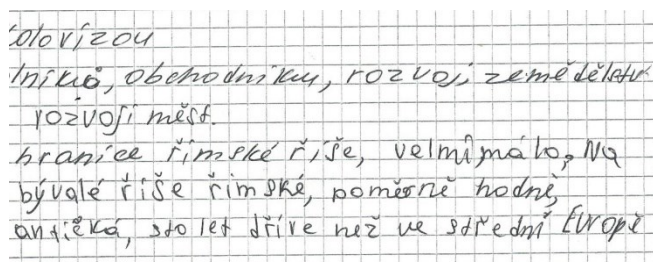 olovízou
lníků, obchodníku, rozvoj, zemědělstv
rozvojí měst.
hranice římské říše, velmi málo, Na
bývalé říše římské, poměrně hodně,
antická, sto let dříve než ve střední Evropě